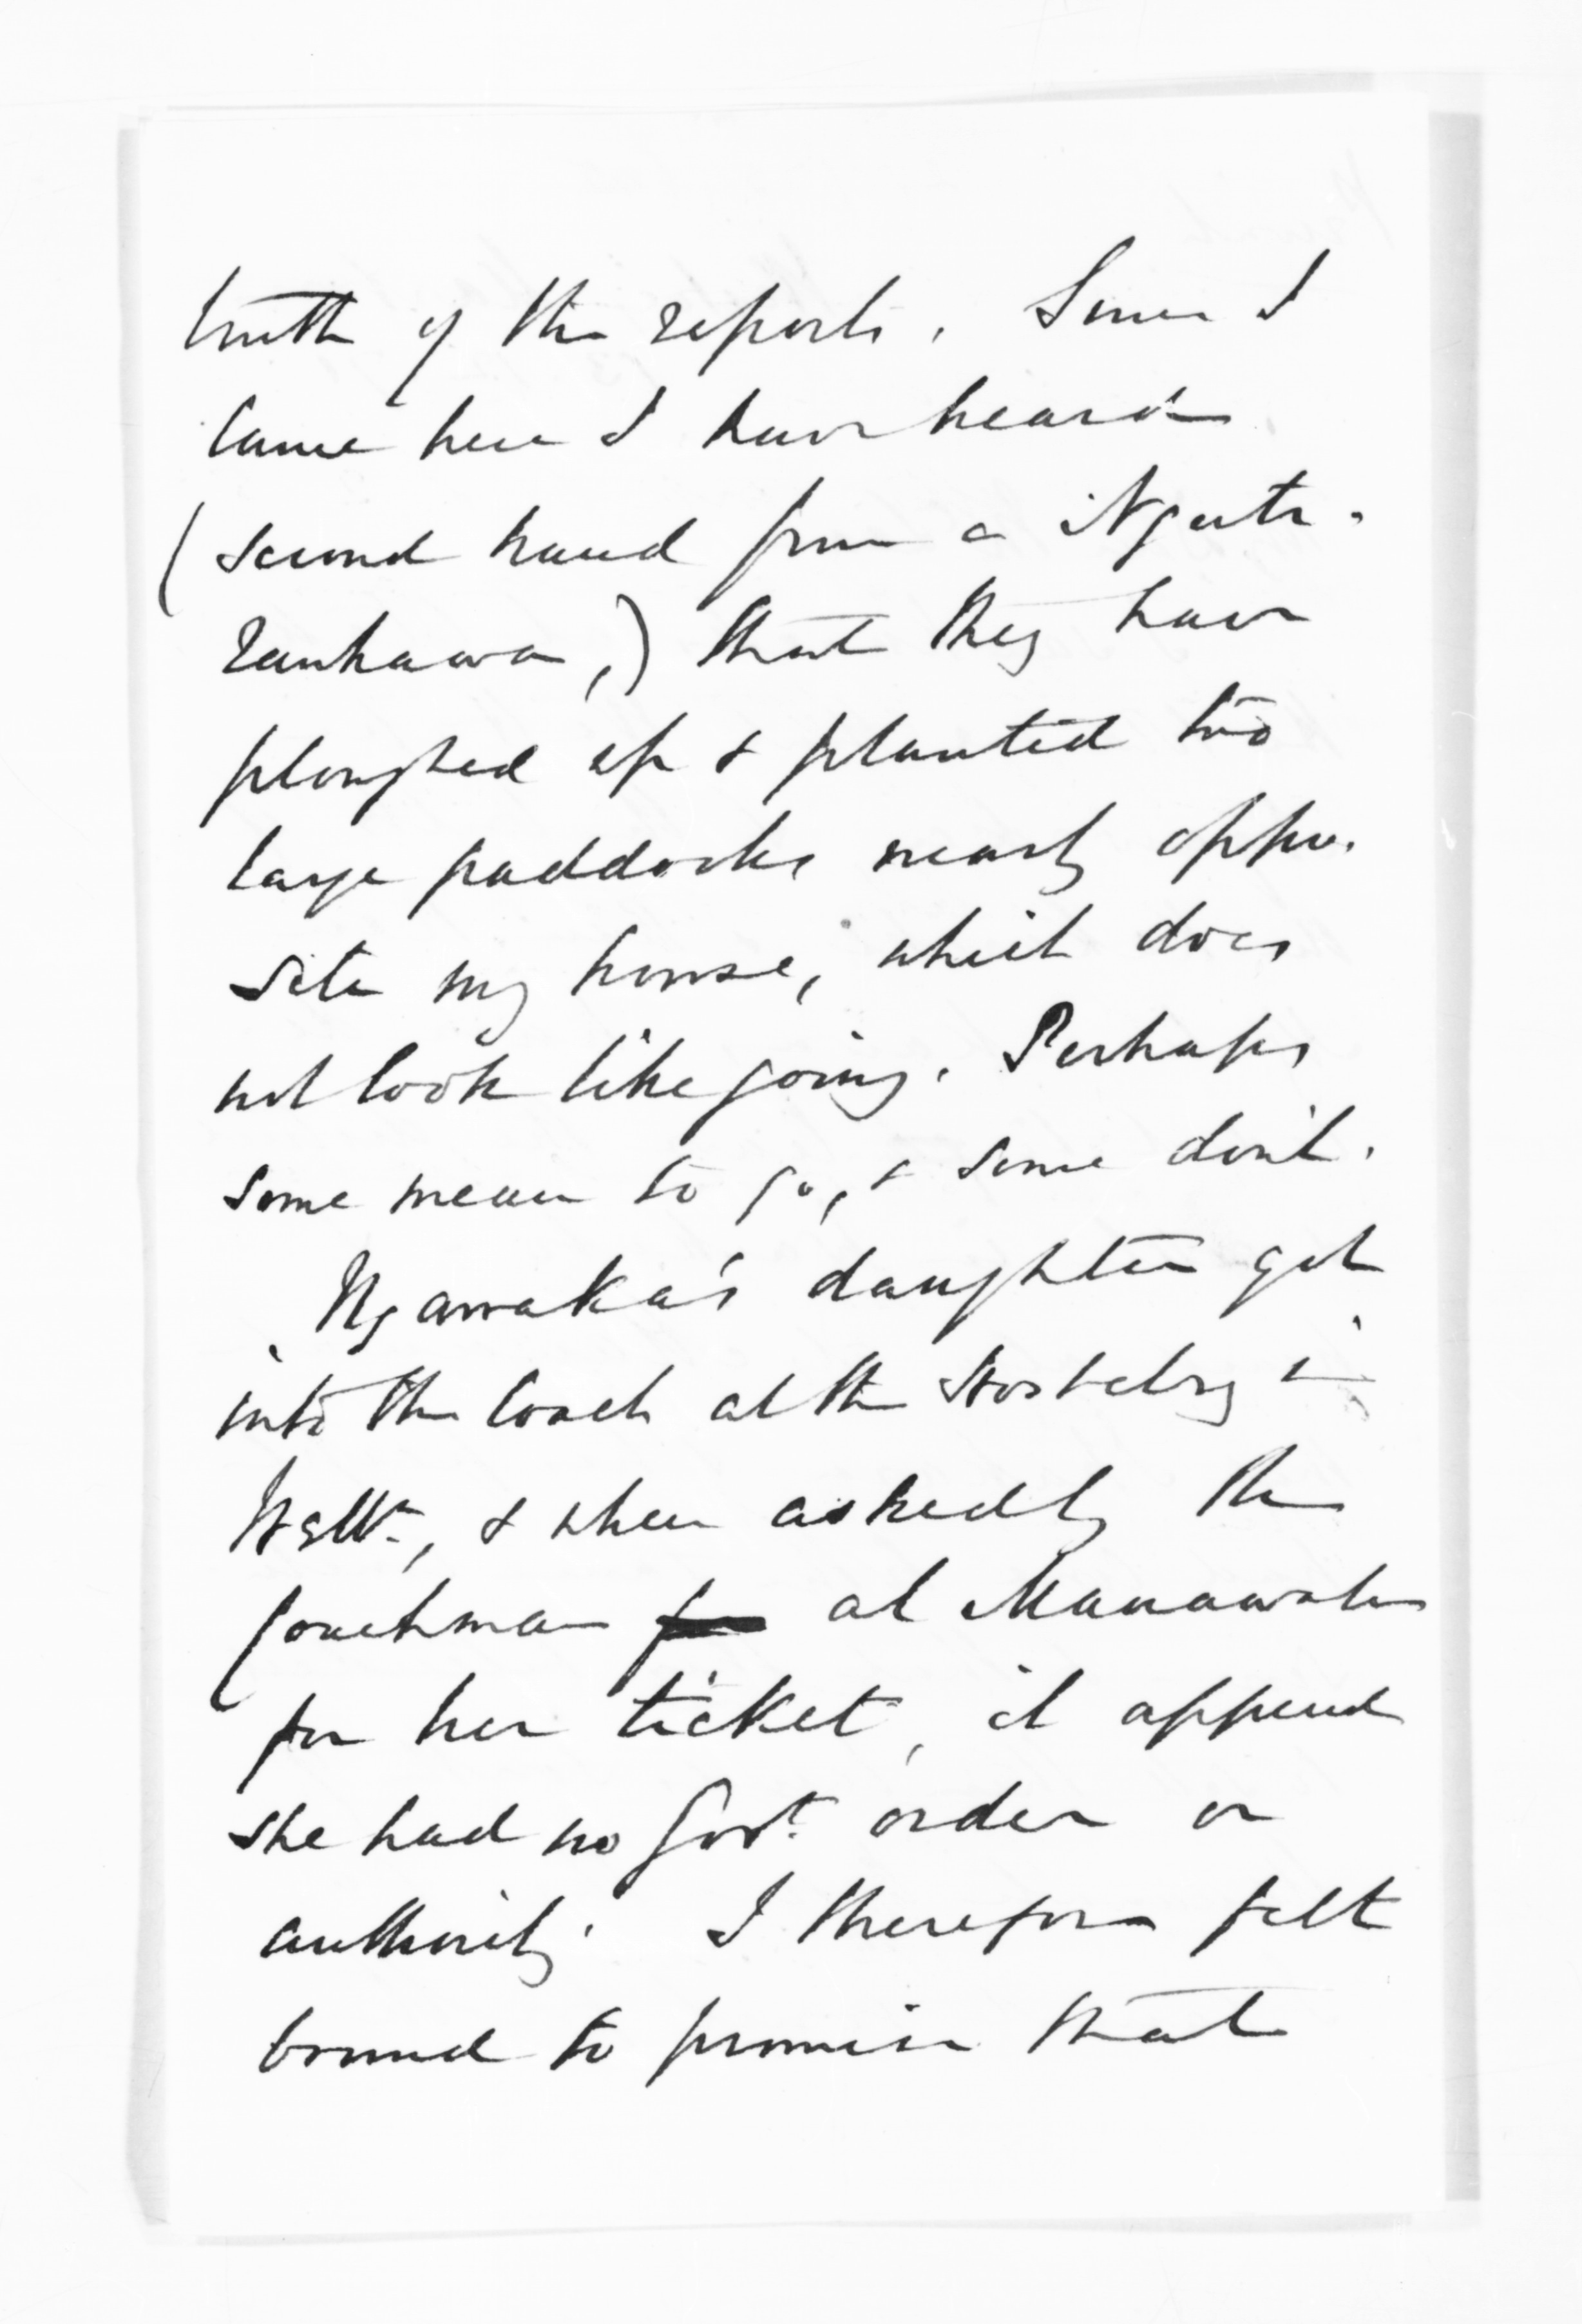 truth of the reports. Since I
came here I have heard
(second hand from a Ngati-
raukawa,) that they have
ploughed up & planted two
large paddocks nearly oppo-
site my house, which does
not look like going. Perhaps
some mean to go, & some don't.
Ngawaka's daughter got
into the coach at the Hostelry in
&when asked by the
Coachman at Manawatu
for her ticket, it appeard
she had no Govt. order or
authority. I therefore felt
bound to promise that